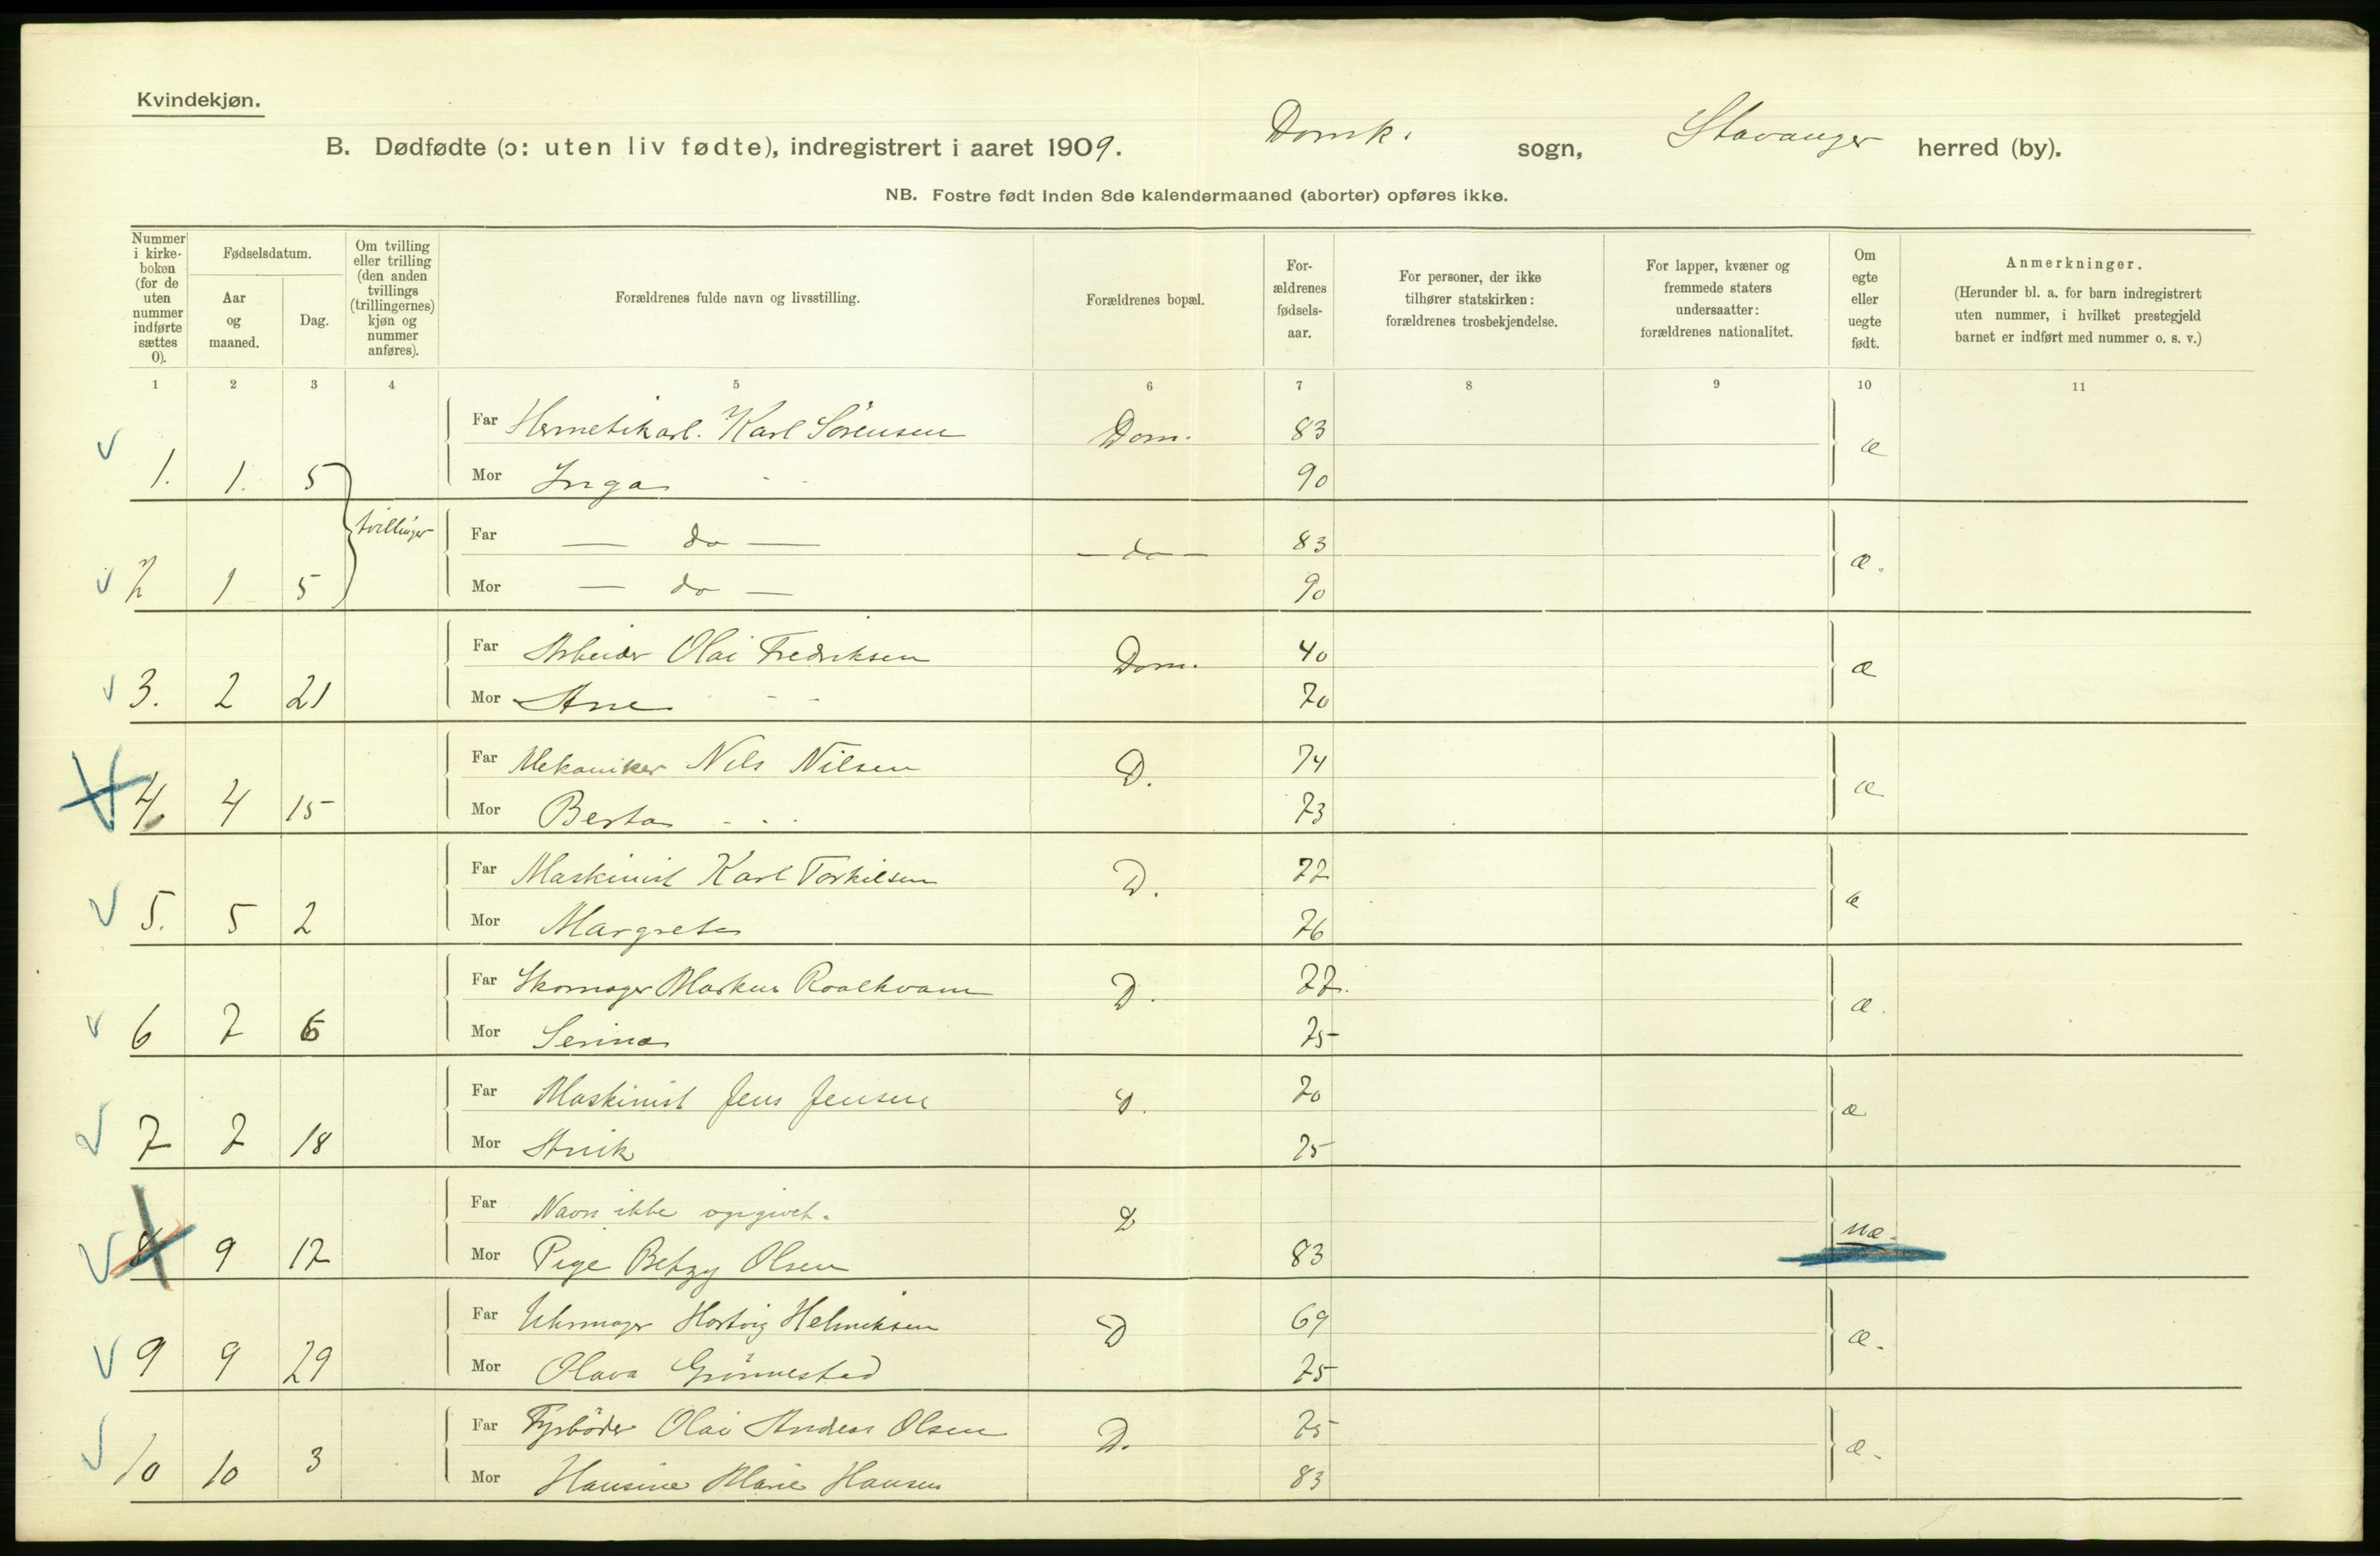 Kvindekjøn.
B. Dødfødte (ɔ: uten liv fødte), indregistrert i aaret 1909. Domk. sogn, Stavanger herred (by).
NB. Fostre født inden 8de kalendermaaned (aborter) opføres ikke.
Nummer i kirke-boken (for de uten nummer indførte sættes 0).
Fødselsdatum.
Aar og maaned.
Dag.
Om tvilling eller trilling (den anden tvillings (trillingernes) kjøn og nummer anføres).
Forældrenes fulde navn og livsstilling.
Forældrenes bopæl.
For-ældrenes fødsels-aar.
For personer, der ikke tilhører statskirken: forældrenes trosbekjendelse.
For lapper, kvæner og fremmede staters undersaatter: forældrenes nationalitet.
Om egte eller uegte født.
Anmerkninger.
(Herunder bl. a. for barn indregistrert uten nummer, i hvilket prestegjeld barnet er indført med nummer o. s. v.)
1 2 3 4 5 6 7 8 9 10 11
Far Hermetikarb. Karl Sörensen Dom. 83 æ
1. 1. 5 Mor Inga - - 90
tvillinger
Far — do — — do — 83 æ.
2 1 5 Mor — do — 90
Far Arbeider Olai Fredriksen Dom. 40 æ
3. 2 21 Mor Ane - - 70
Far Mekaniker Nils Nilsen D. 74 æ
4. 4 15 Mor Berta - - 73
Far Maskinist Karl Torkilsen D. 72 æ
5. 5 2 Mor Margreta 76
Far Skomager Markus Roalkvam D. 77. æ.
6 7 6 Mor Serina 75
Far Maskinist Jens Jensen D. 70 æ
7 7 18 Mor 75
Far Navn ikke opgivet. D uæ.
8 9 17 Mor Pige Betzy Olsen 83
Far Uhrmager Hartvig Helmiksen D 69 æ.
9 9 29 Mor Olava Grönnestad 75
Far Fyrböder Olai Andreas Olsen D. 75 æ.
10 10 3 Mor Hansine Marie Hansen 83